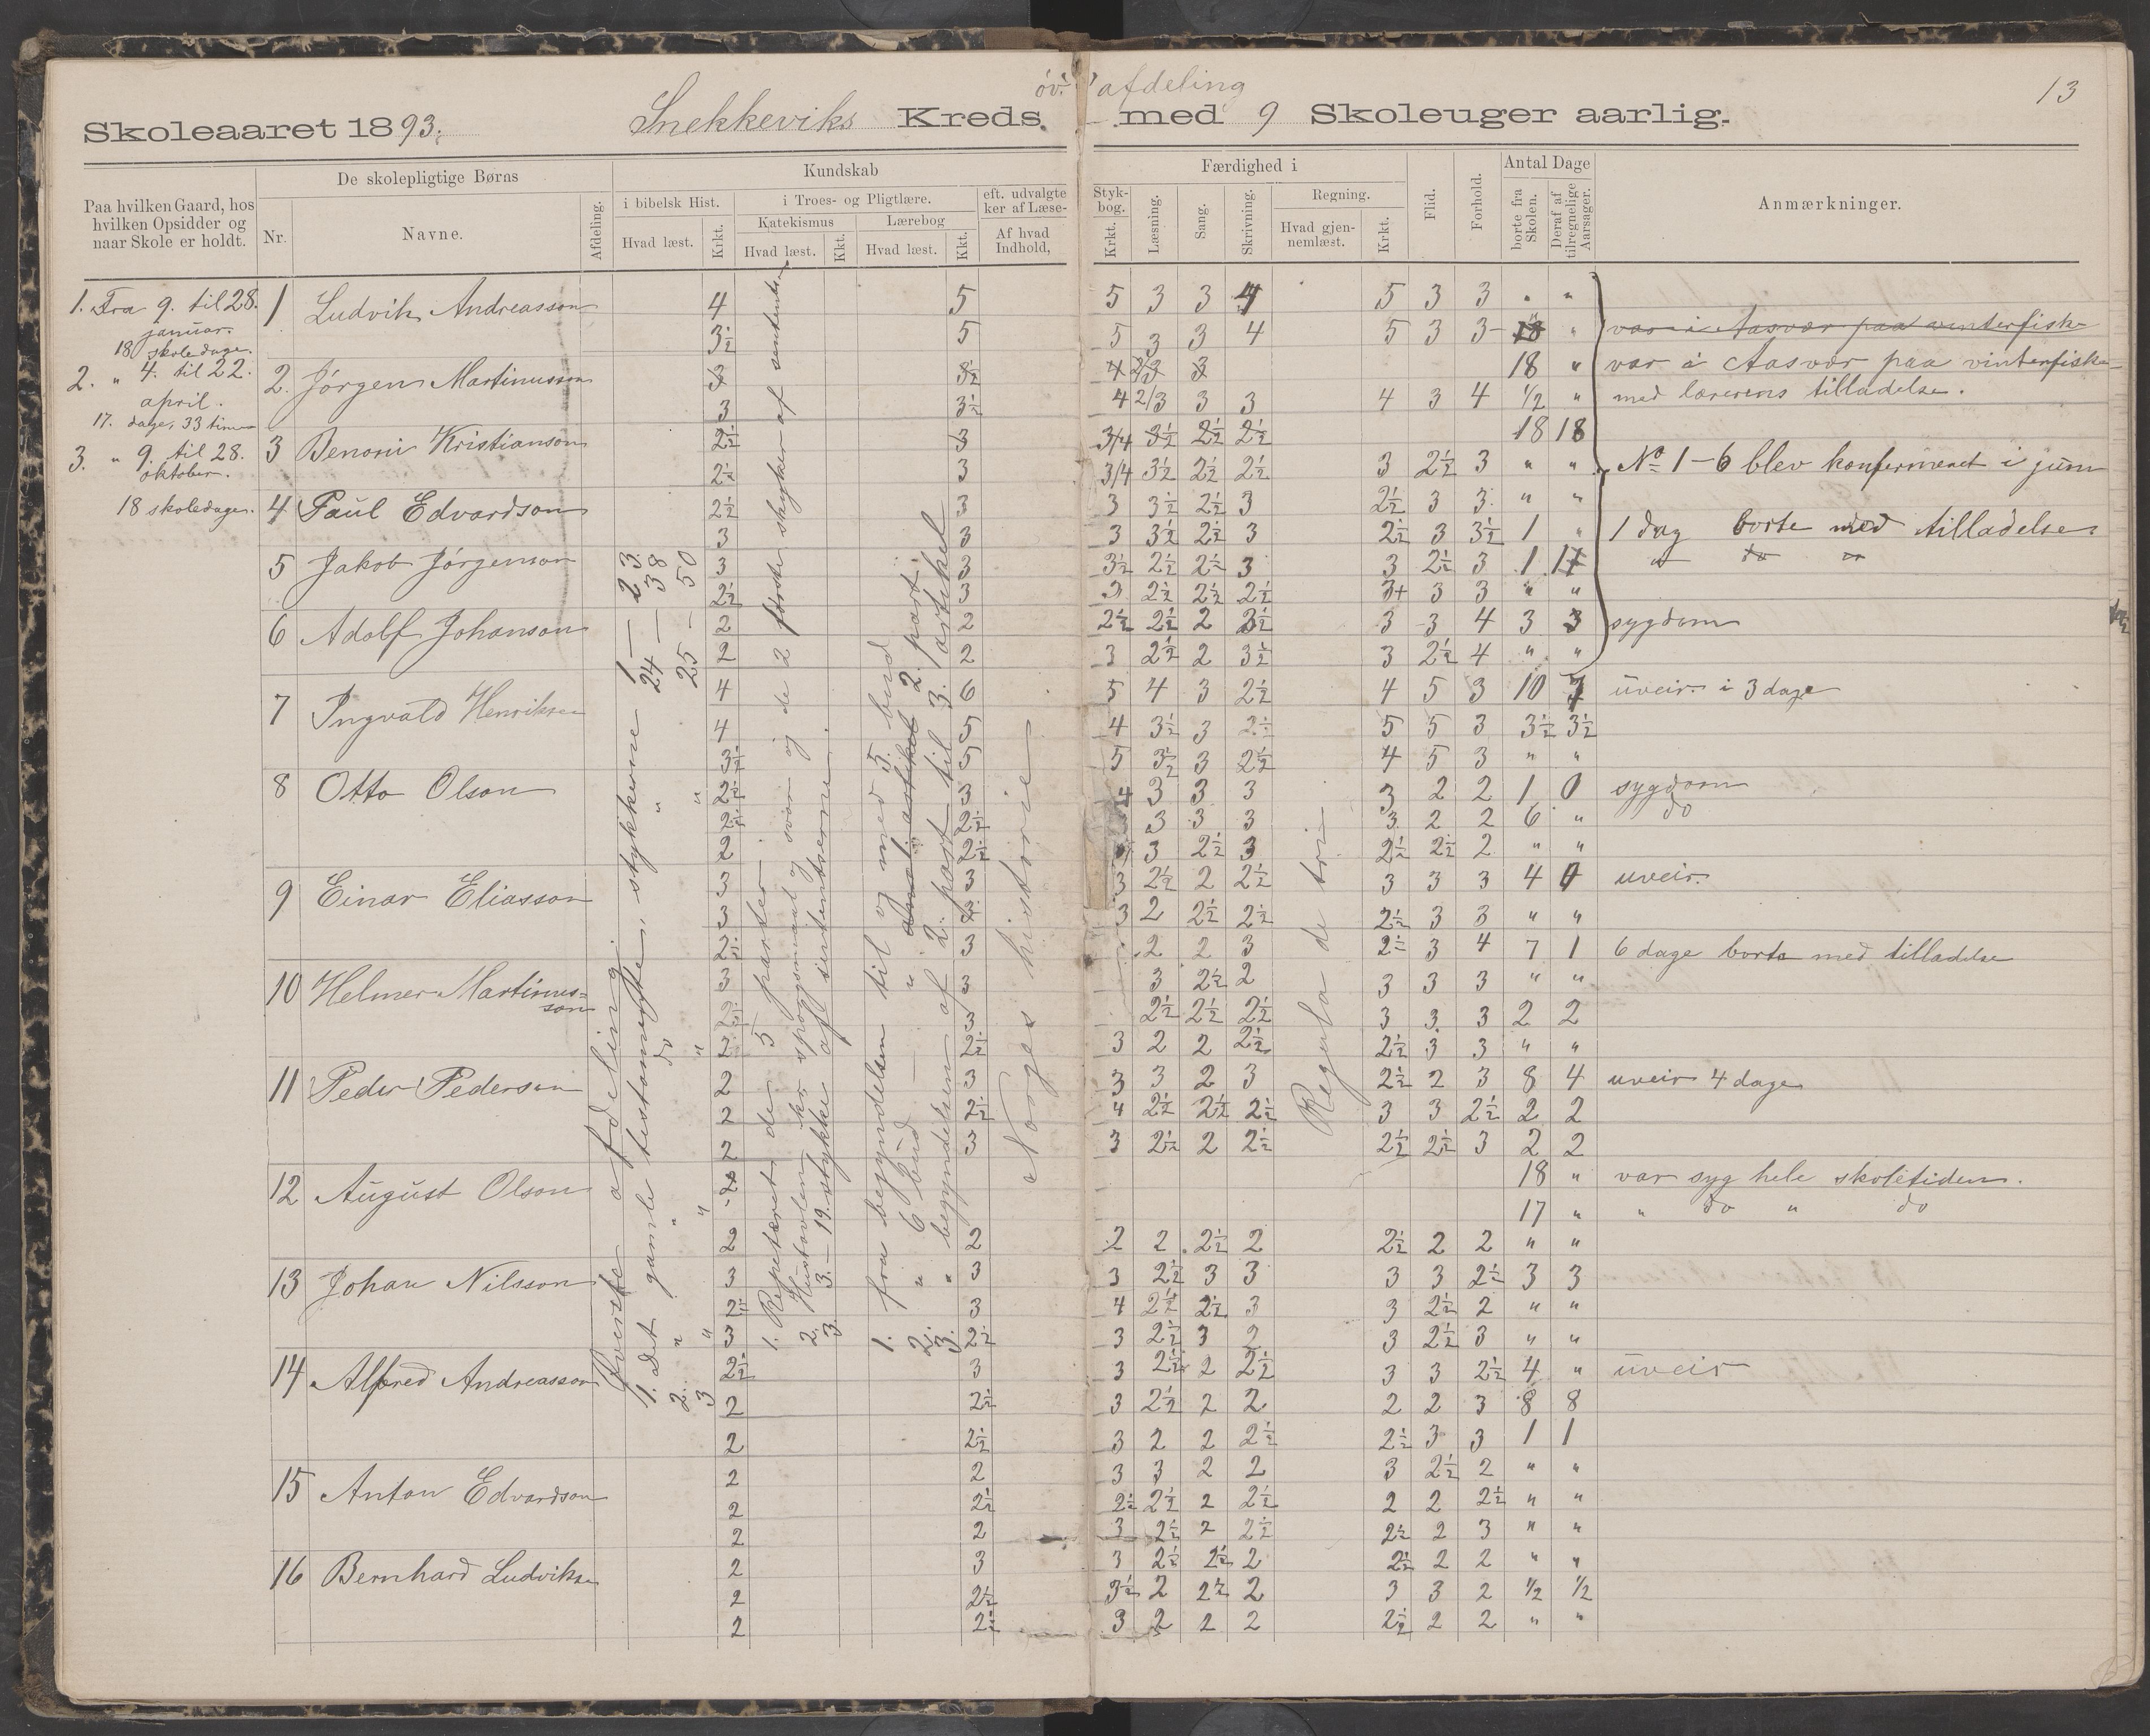 øv. afdeling
13
Skoleaaret 1893. Snekkeviks Kreds. med 9 Skoleuger aarlig.
Paa hvilken Gaard, hos hvilken Opsidder og naar Skole er holdt.
De skolepligtige Børns
Nr.
Navne.
Afdeling.
Kundskab
i bibelsk Hist.
Hvad læst.
Krkt.
i Troes- og Pligtlære.
Katekismus
Hvad læst.
Kkt.
Lærebog
Hvad læst.
Kkt.
eft. udvalgte
ker af Læse-
Af hvad
Indhold,
Styk-
bog.
Krkt.
Færdighed i
Læsning.
Sang.
Skrivning.
Regning.
Hvad gjen-
nemlæst.
Krkt.
Flid.
Forhold.
Antal Dage
borte fra Skolen.
Deraf af tilregnelige Aarsager.
Anmærkninger.
1. Fra 9. til 28.
januar.
18 skoledage.
2. " 4. til 22.
april.
17. dage, 33 timer
3. " 9. til 28.
oktober.
18 skoledage.
1 Ludvik Andreasson 4 5 5 3 3 4 5 3 3 " "
3½ 5 5 3 3 4 5 3 3 18 " var i Aasvær paa vinterfiske
18 " var i Aasvær paa vinterfiske
2. Jørgen Martinusson 3 3½ 4 2/3 3
med lærerens tilladelse.
3 3½ 4 2/3 3 3 4 3 4 ½ "
3 Benoni Kristianson 2½ 3 3/4 3½ 2½ 2½ 18 18
2½ 3 3/4 3½ 2½ 2½ 3 2½ 3 " " No 1-6 blev konfirmeret i juni
4 Paul Edvardson 2½ 3 3 3½ 2½ 3 2½ 3 3 " "
3 3 3 3½ 2½ 3 2½ 3 3½ 1 " 1 dag borte med tilladelse.
5 Jakob Jørgenson 3 3 3½ 2½ 2½ 3 3 2½ 3 1 " do "
2½ 3 3 2½ 2½ 2½ 3+ 3 3 " "
6 Adolf Johanson 2 2 2½ 2½ 2 3½ 3 3 4 3 3 sygdom
2 2 3 2½ 2 3½ 3 2½ 4 " "
7 Ingvald Henriksen 4 6 5 4 3 2½ 4 5 3 10 7 uveir i 3 dage
4 5 4 3½ 3 2½ 5 5 3 3½ 3½
3½ 5 5 3½ 3 2½ 4 5 3 " "
8 Otto Olson 2½ 3 4 3 3 3 3 2 2 1 0 sygdom
2½ 2½ 3 3 3 3 3 2 2 6 " do
2 2½ 3 2½ 3 2½ 2½ 2 " "
9 Einar Eliasson 3 3 3 2½ 2 2½ 3 3 3 4 0 uveir.
3 3 2 2½ 2½ 2½ 3 3 " "
2½ 3 2 2 3 2½ 3 4 7 1 6 dage borte med tilladelse
10 Helmer Martinus=
son
3 3 3 2½ 2 3 3 3 " "
2½ 3 2½ 2½ 2½ 3 3 3 2 2
2 2½ 3 2 2 2½ 2½ 3 3 " "
11 Peder Pederson 2 3 3 3 2 3 2½ 2 3 8 4 uveir 4 dage
2 2½ 4 2½ 2½ 2½ 3 3 2½ 2 2
2 3 3 2½ 2 2½ 2½ 2½ 3 2 2
12 August Olson 18 " var syg hele skoletiden.
17 " " do " do
2 2 2 2 2½ 2 2½ 2 2 " "
13 Johan Nilsson 3 3 3 2½ 3 3 3 3 2½ 3 3
2½ 3 4 2½ 2½ 3 3 2½ 2 " "
3 2½ 3 2½ 3 2 3 2½ 3 " "
14 Alfred Andreasson 2½ 3 3 2½ 2 2½ 3 3 2½ 4 " uveir
2 2½ 3 2½ 2 2 2 2 3 8 8
2 2½ 3 2 2 2½ 2½ 3 3 1 1
15 Anton Edvardson 2 2 3 3 2 2 3 2½ 2 " "
2 2½ 2½ 2½ 2 2½ 2 2 2½ " "
2 2 3 2½ 2 2½ 2½ 2 3 " "
16 Bernhard Ludviksen 2 3 3 2½ 2½ 2 2½ 2 2 " "
2 2½ 3½ 2 2½ 2 3 3 2 ½ ½
2 2½ 3 2 2 2 2½ 2 2 " "
Øverste afdeling.
1. Det gamle testamente, stykkerne 1 — 23.
2. " " do " 24 — 38
3 " " " " 25 — 50
1. Repeteret de 5 parter.
2. Hustavlen, skr spørgsmaal og svar og de 2 første stykker af sententserne
3. 3. — 19. stykke af sententserne.
1. fra begyndelsen til og med 5. bud
2. " 6 bud — " 2. part.
3. " begyndelsen af 2. part til 3. artikel
Norges historie
Regula de tri